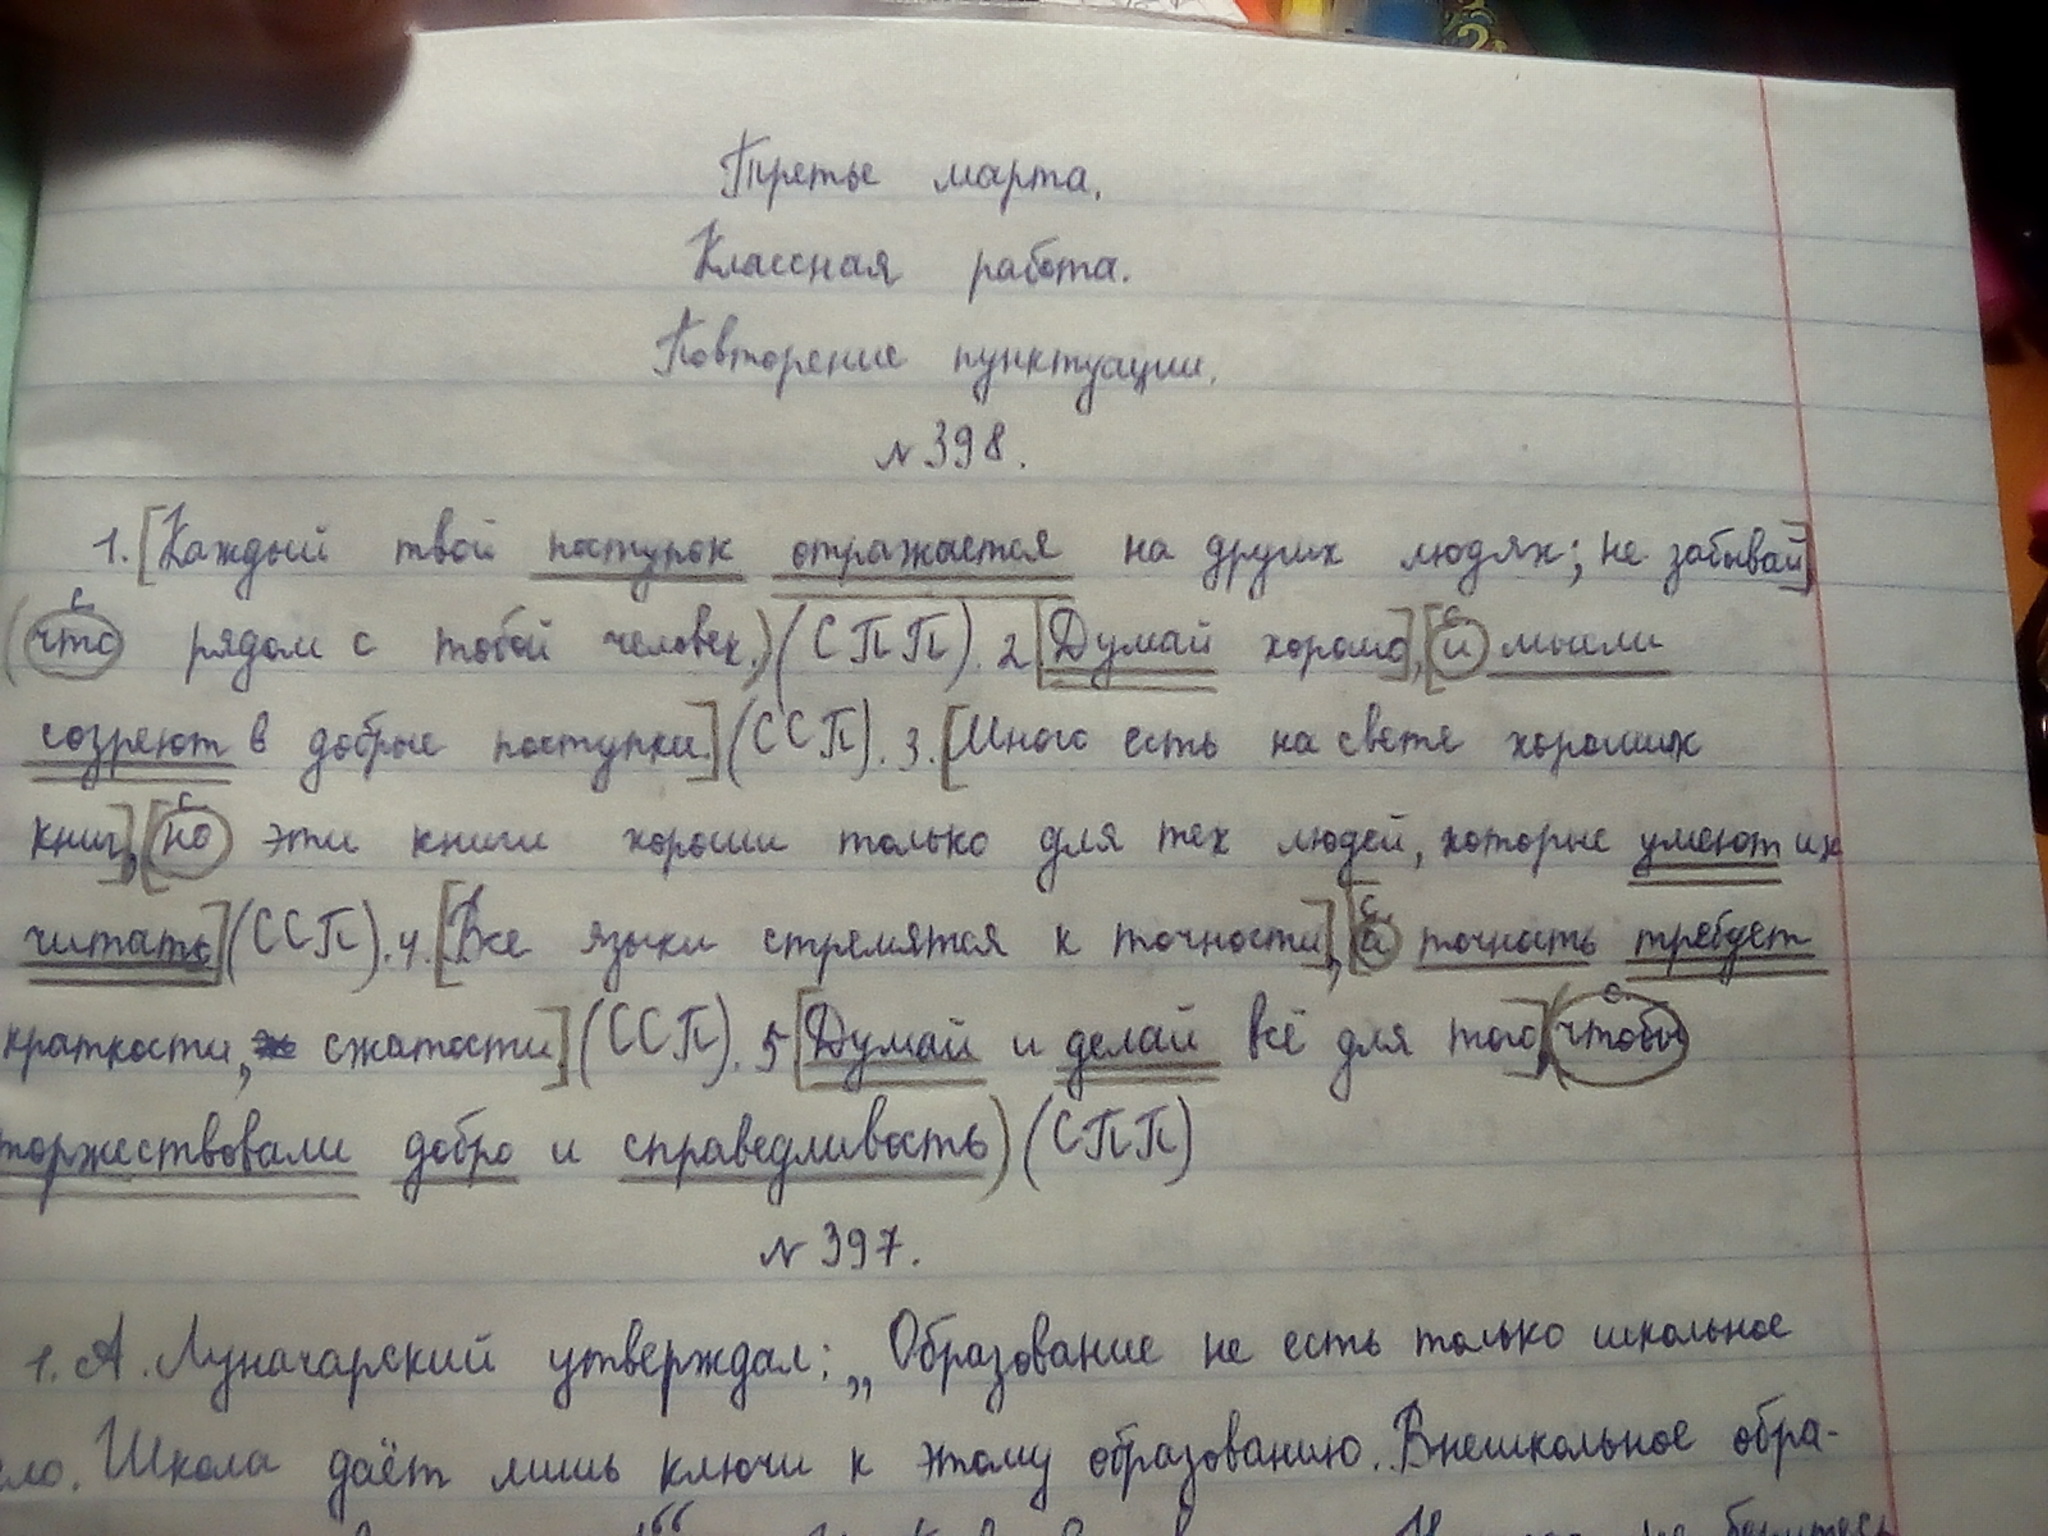 Третье марта.
Классная работа.
Повторение пунктуации.
№398.
1. [Каждый твой поступок отражается на других людях; не забывай]
(что рядом с тобой человек.) (СПП). 2 [Думай хорошо], [и мысли
созреют в добрые поступки.] (ССП). 3. [Много есть на свете хороших
книг], [но эти книги хороши только для тех людей, которые умеют их
читать] (ССП). 4. [Все языки стремятся к точности], [а точность требует
краткости, сжатости.] (ССП). 5 [Думай и делай всё для того], (чтобы
торжествовали добро и справедливость) (СПП)
№397.
1. А. Луначарский утверждал: „Образование не есть только школьное
Школа даёт лишь ключи к этому образованию. Внешкольное обра-